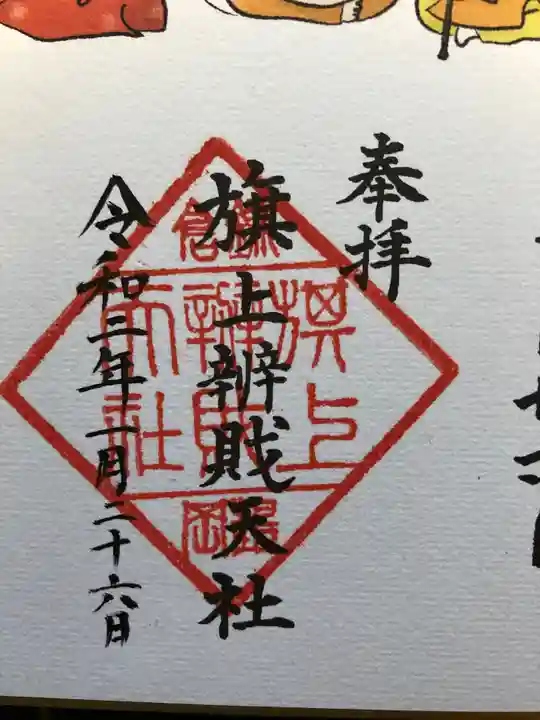 奉拝
旗上辨財天社
令和三年一月二十六日
鎌倉
旗上
辨財
天社